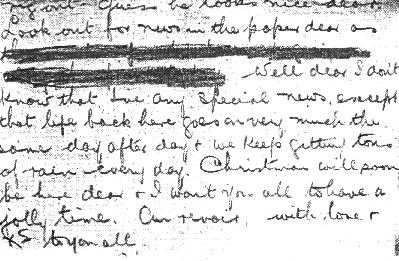 out - Guess he looks nice dear
Look out for news in the paper dear as
Well dear I don't
know that I've any special news, except
that life back here goes on very much the
same day after day & we keep getting tons
of rain every day. Christmas will soon
be here dear & I want you all to have a
jolly time. Au revoir, with love &
to you all